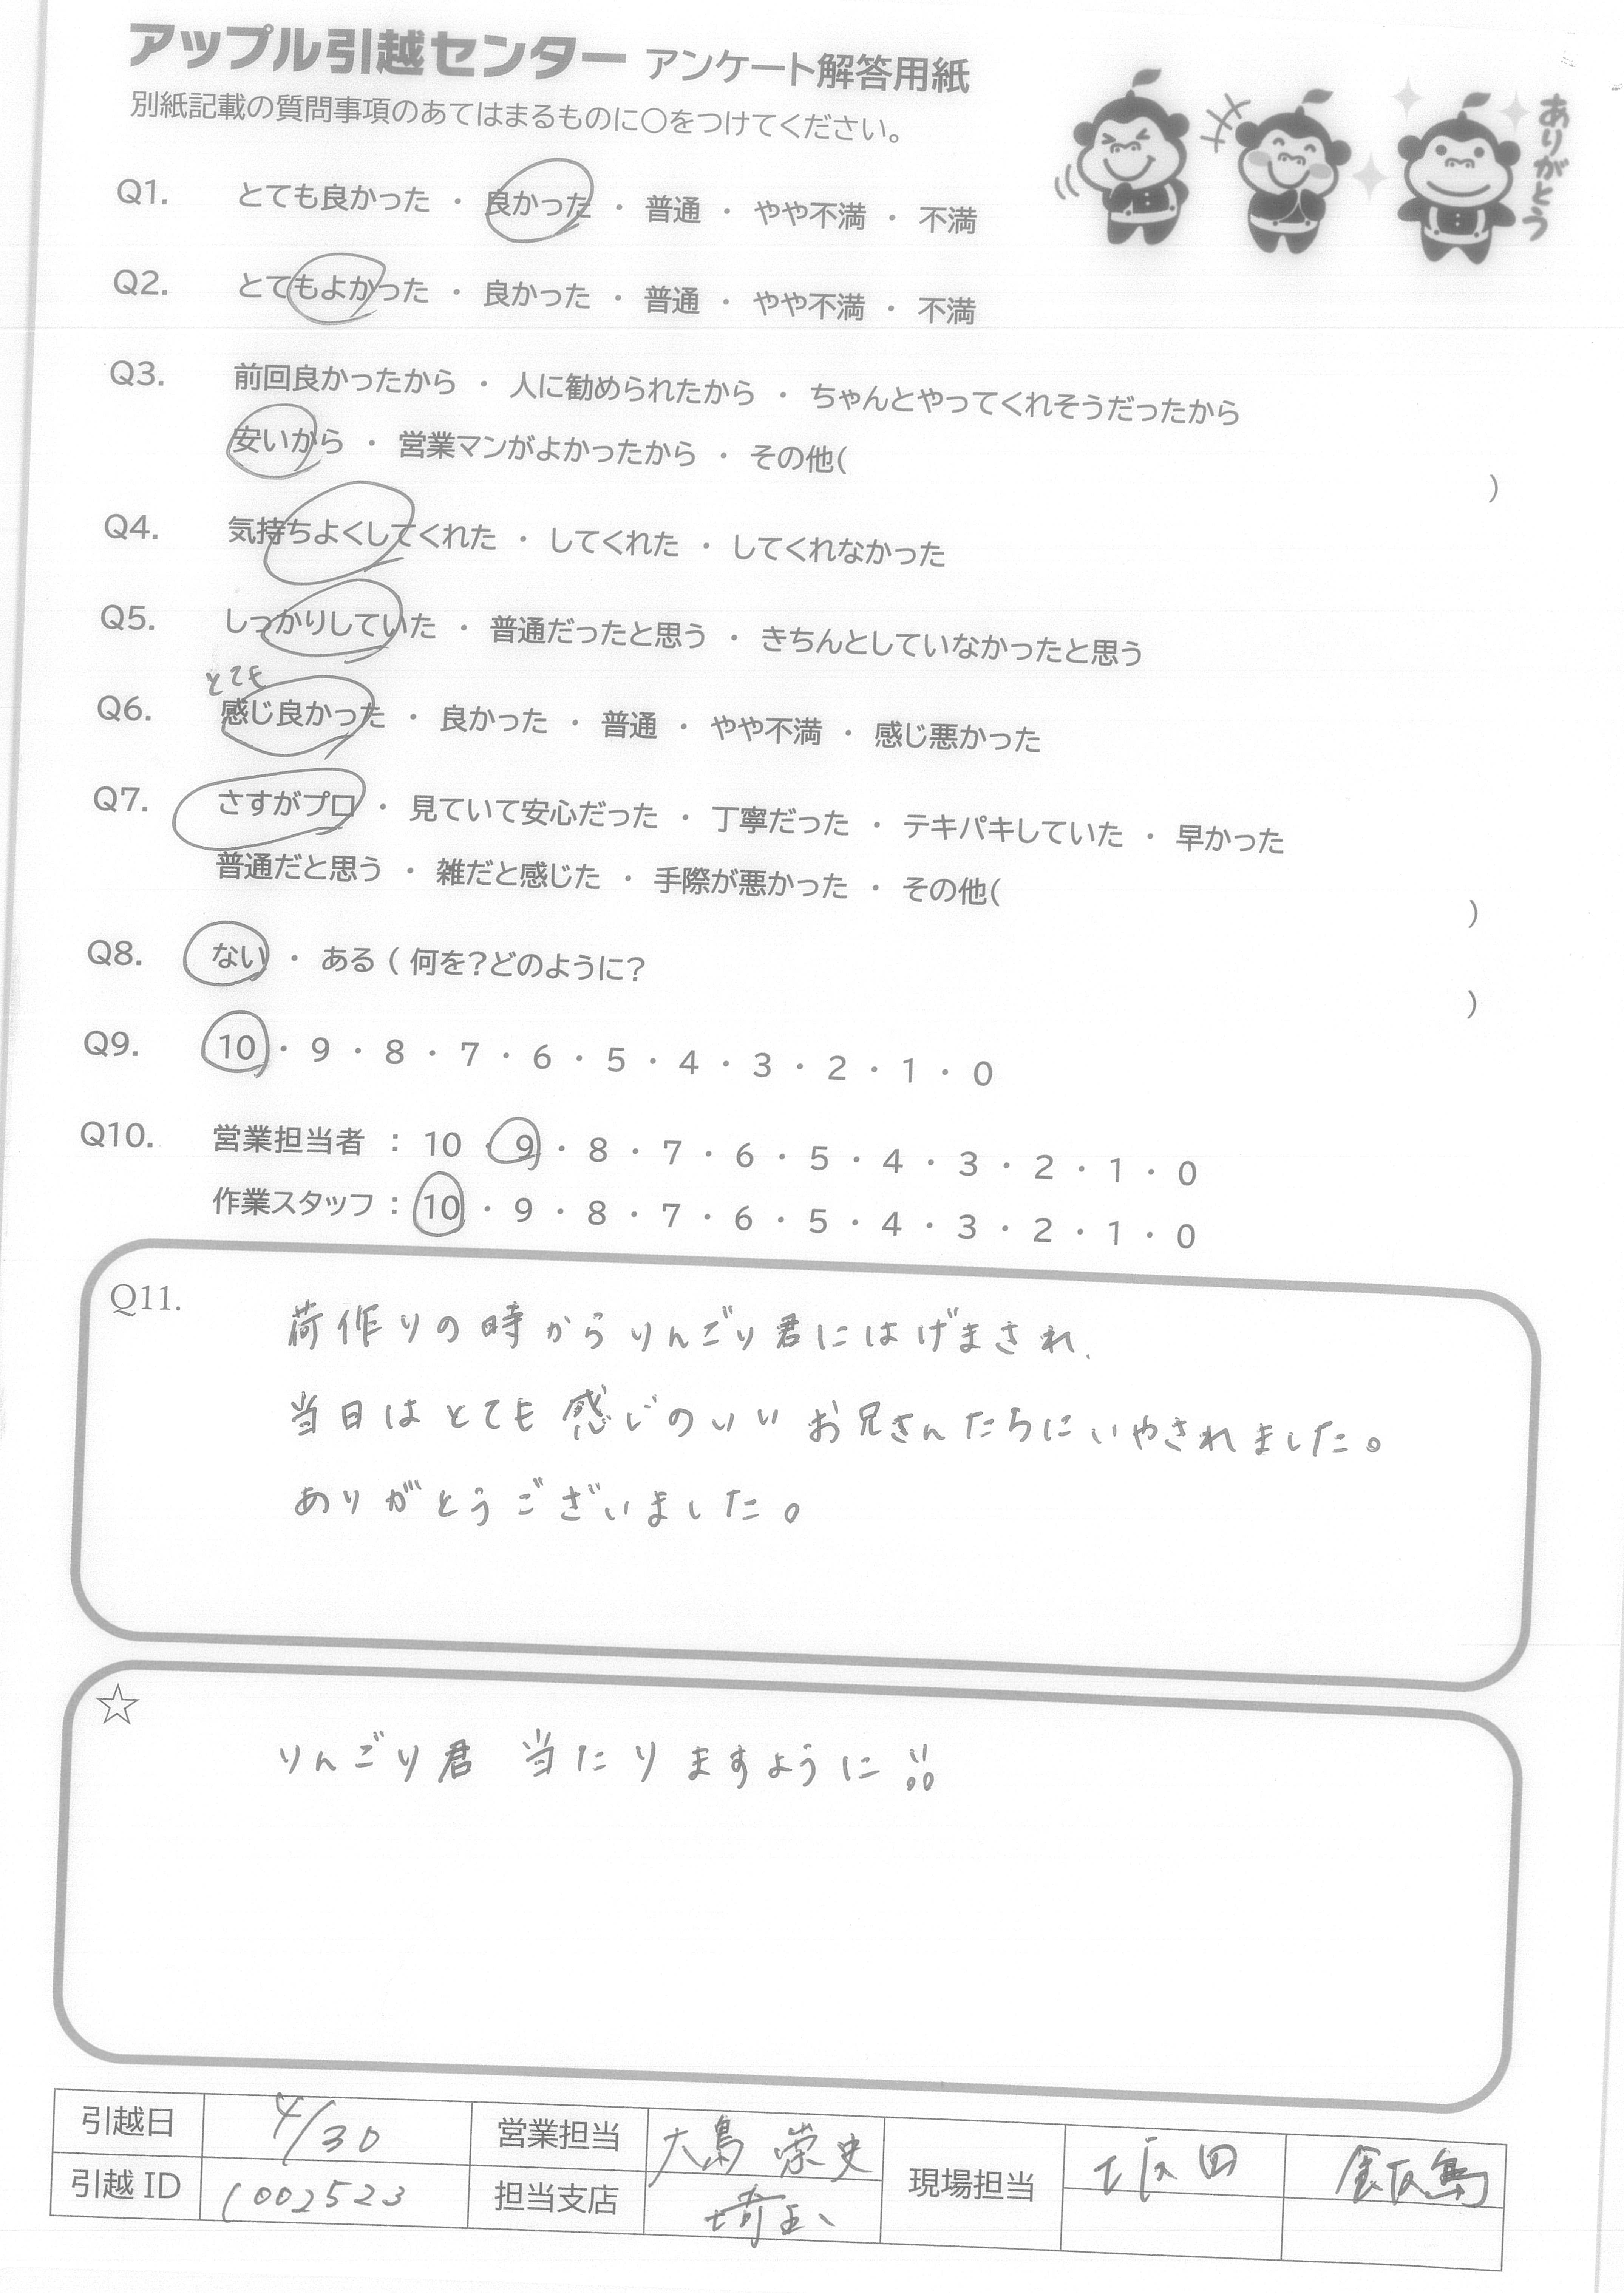 アップル引越センター アンケート解答用紙
別紙記載の質問事項のあてはまるものに○をつけてください。
ありがとう
Q1. とても良かった ・ 良かった ・ 普通 ・ やや不満 ・ 不満
Q2. とてもよかった ・ 良かった ・ 普通 ・ やや不満 ・ 不満
Q3. 前回良かったから ・ 人に勧められたから ・ ちゃんとやってくれそうだったから
安いから ・ 営業マンがよかったから ・ その他( )
Q4. 気持ちよくしてくれた ・ してくれた ・ してくれなかった
Q5. しっかりしていた ・ 普通だったと思う ・ きちんとしていなかったと思う
とても
Q6. 感じ良かった ・ 良かった ・ 普通 ・ やや不満 ・ 感じ悪かった
Q7. さすがプロ ・ 見ていて安心だった ・ 丁寧だった ・ テキパキしていた ・ 早かった
普通だと思う ・ 雑だと感じた ・ 手際が悪かった ・ その他( )
Q8. ない ・ ある ( 何を?どのように? )
Q9. 10 ・ 9 ・ 8 ・ 7 ・ 6 ・ 5 ・ 4 ・ 3 ・ 2 ・ 1 ・ 0
Q10. 営業担当者 : 10 ・ 9 ・ 8 ・ 7 ・ 6 ・ 5 ・ 4 ・ 3 ・ 2 ・ 1 ・ 0
作業スタッフ : 10 ・ 9 ・ 8 ・ 7 ・ 6 ・ 5 ・ 4 ・ 3 ・ 2 ・ 1 ・ 0
Q11.
荷作りの時からりんごり君にはげまされ、
当日はとても感じのいいお兄さんたちにいやされました。
ありがとうございました。
☆
りんごり君 当たりますように!!
引越日 4/30 営業担当 大島 崇史 現場担当 坂田 飯島
引越 ID 1002523 担当支店 埼玉